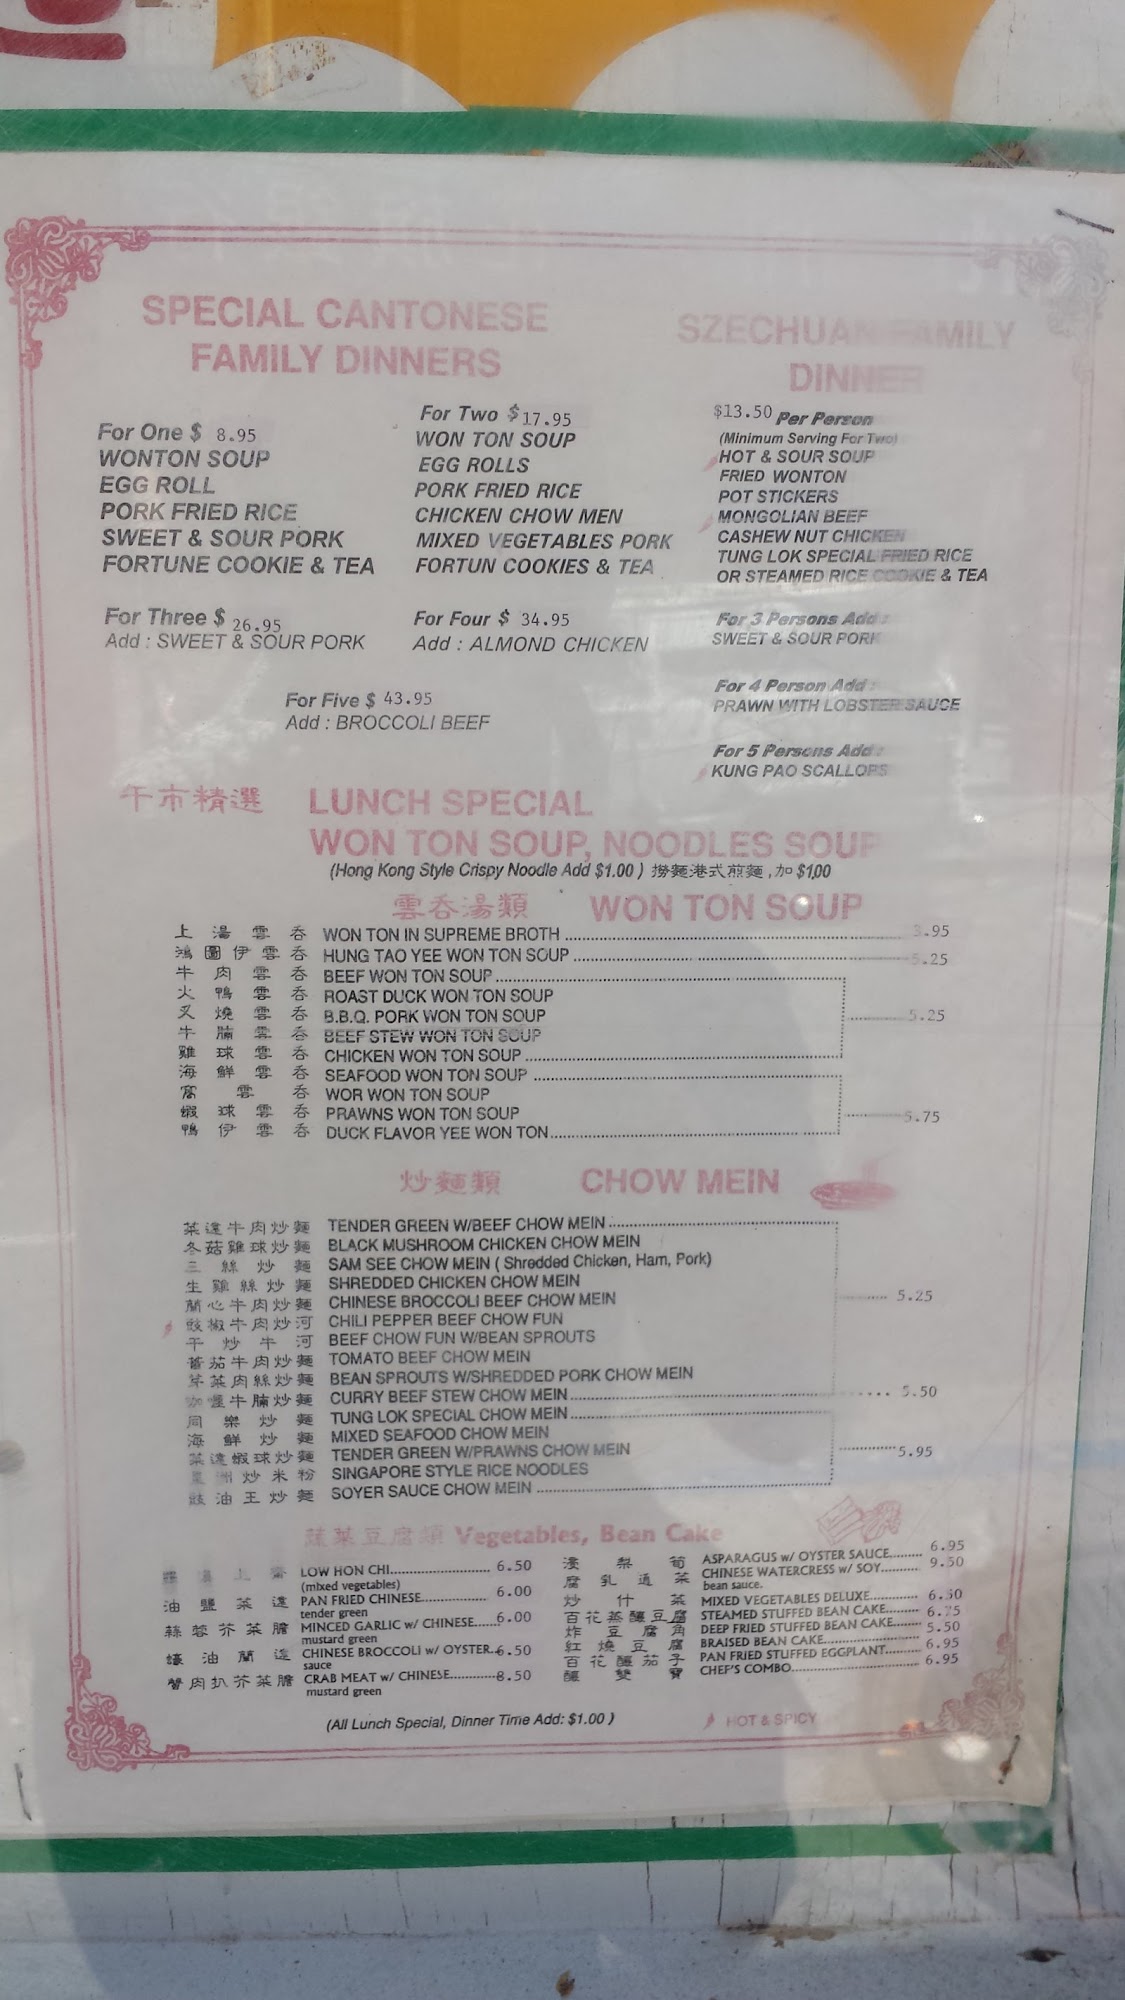 SPECIAL CANTONESE
FAMILY DINNERS
For One $ 8.95
WONTON SOUP
EGG ROLL
PORK FRIED RICE
SWEET & SOUR PORK
FORTUNE COOKIE & TEA
For Two $17.95
WON TON SOUP
EGG ROLLS
PORK FRIED RICE
CHICKEN CHOW MEN
MIXED VEGETABLES PORK
FORTUN COOKIES & TEA
For Three $ 26.95
Add : SWEET & SOUR PORK
For Four $ 34.95
Add : ALMOND CHICKEN
For Five $ 43.95
Add : BROCCOLI BEEF
SZECHUAN FAMILY
DINNER
$13.50 Per Person
(Minimum Serving For Two)
HOT & SOUR SOUP
FRIED WONTON
POT STICKERS
MONGOLIAN BEEF
CASHEW NUT CHICKEN
TUNG LOK SPECIAL FRIED RICE
OR STEAMED RICE COOKIE & TEA
For 3 Persons Add :
SWEET & SOUR PORK
For 4 Person Add :
PRAWN WITH LOBSTER SAUCE
For 5 Persons Add :
KUNG PAO SCALLOPS
午市精選 LUNCH SPECIAL
WON TON SOUP, NOODLES SOUP
(Hong Kong Style Crispy Noodle Add $1.00 ) 撈麵港式煎麵,加$1.00
雲吞湯類 WON TON SOUP
上湯雲吞 WON TON IN SUPREME BROTH 3.95
鴻圖伊雲吞 HUNG TAO YEE WON TON SOUP 5.25
牛肉雲吞 BEEF WON TON SOUP
火鴨雲吞 ROAST DUCK WON TON SOUP
叉燒雲吞 B.B.Q. PORK WON TON SOUP 5.25
牛腩雲吞 BEEF STEW WON TON SOUP
雞球雲吞 CHICKEN WON TON SOUP
海鮮雲吞 SEAFOOD WON TON SOUP
窩雲吞 WOR WON TON SOUP
蝦球雲吞 PRAWNS WON TON SOUP 5.75
鴨伊雲吞 DUCK FLAVOR YEE WON TON
炒麵類 CHOW MEIN
菜遠牛肉炒麵 TENDER GREEN W/BEEF CHOW MEIN
冬菇雞球炒麵 BLACK MUSHROOM CHICKEN CHOW MEIN
三絲炒麵 SAM SEE CHOW MEIN ( Shredded Chicken, Ham, Pork)
生雞絲炒麵 SHREDDED CHICKEN CHOW MEIN
蘭心牛肉炒麵 CHINESE BROCCOLI BEEF CHOW MEIN 5.25
豉椒牛肉炒河 CHILI PEPPER BEEF CHOW FUN
干炒牛河 BEEF CHOW FUN W/BEAN SPROUTS
蕃茄牛肉炒麵 TOMATO BEEF CHOW MEIN
芽菜肉絲炒麵 BEAN SPROUTS W/SHREDDED PORK CHOW MEIN
咖喱牛腩炒麵 CURRY BEEF STEW CHOW MEIN 5.50
同樂炒麵 TUNG LOK SPECIAL CHOW MEIN
海鮮炒麵 MIXED SEAFOOD CHOW MEIN
菜遠蝦球炒麵 TENDER GREEN W/PRAWNS CHOW MEIN 5.95
星洲炒米粉 SINGAPORE STYLE RICE NOODLES
豉油王炒麵 SOYER SAUCE CHOW MEIN
蔬菜豆腐類 Vegetables, Bean Cake
羅漢上齋 LOW HON CHI 6.50
(mixed vegetables)
油鹽菜遠 PAN FRIED CHINESE 6.00
tender green
蒜蓉芥菜膽 MINCED GARLIC w/ CHINESE 6.00
mustard green
蠔油蘭遠 CHINESE BROCCOLI w/ OYSTER 6.50
sauce
蟹肉扒芥菜膽 CRAB MEAT w/ CHINESE 8.50
mustard green
ASPARAGUS w/ OYSTER SAUCE 6.95
腐乳通菜 CHINESE WATERCRESS w/ SOY 9.50
bean sauce.
炒什菜 MIXED VEGETABLES DELUXE 6.50
百花蒸釀豆腐 STEAMED STUFFED BEAN CAKE 6.75
炸豆腐角 DEEP FRIED STUFFED BEAN CAKE 5.50
紅燒豆腐 BRAISED BEAN CAKE
百花釀茄子 PAN FRIED STUFFED EGGPLANT 6.95
釀雙寶 CHEF'S COMBO 6.95
(All Lunch Special, Dinner Time Add: $1.00 )
HOT & SPICY